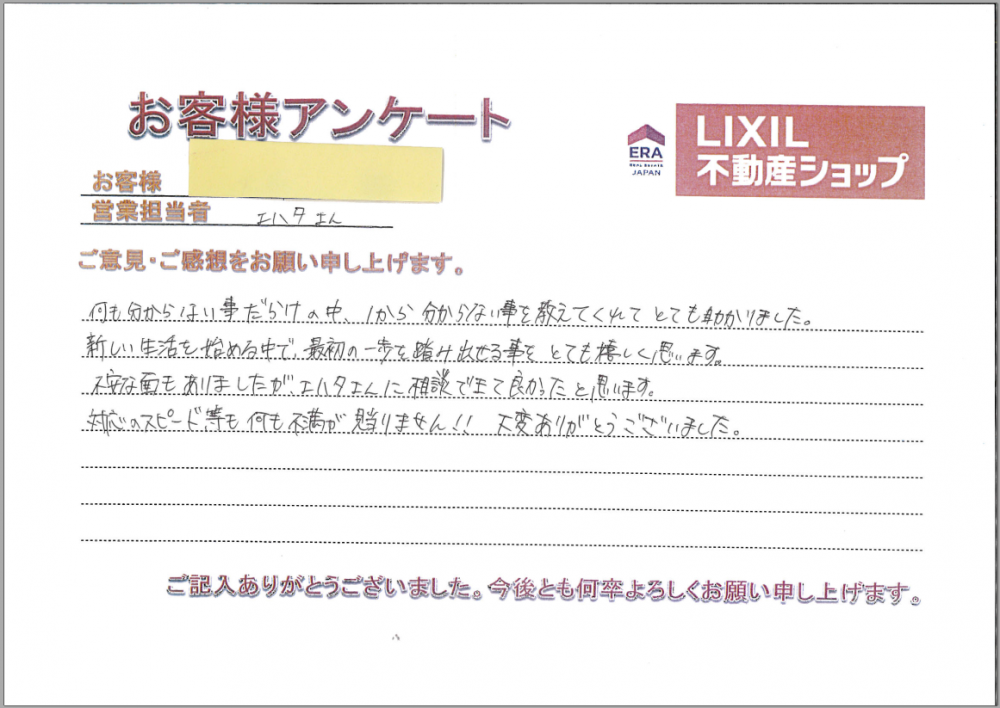 お客様アンケート
ERA
REAL ESTATE
JAPAN
LIXIL
不動産ショップ
お客様
営業担当者 エハタさん
ご意見・ご感想をお願い申し上げます。
何も分からない事だらけの中、1から分からない事を教えてくれてとても助かりました。
新しい生活を始める中で、最初の一歩を踏み出せる事をとても嬉しく思います。
不安な面もありましたが、エハタさんに相談できて良かったと思います。
対応のスピード等も何も不満が見当りません!! 大変ありがとうございました。
ご記入ありがとうございました。今後とも何卒よろしくお願い申し上げます。